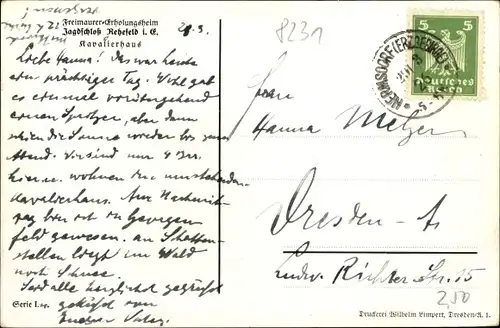 Freimaurer-Erholungsheim
Jagdschloß Rehefeld i. E.
Kavalierhaus
28.3.
8231
Liebe Hanna! Das war heute
ein prächtiger Tag. Wohl gab
es einmal vorübergehend
einen Spritzer, aber dann
schien die Sonne wieder bis zum
Abend. Wir sind nur 4 Zim.
hier u. wohnen im umstehenden
Kavalierhaus. Am Nachmit-
tag bin ich in
feld gewesen. an Schatten-
stellen liegt im Wald
noch Schnee.
Seid alle herzlichst gegrüßt
geküßt von
Vater.
Serie I.
Frau
Hanna Melzer
Dresden - A
Ludw. Richter Str. 15
2,50
Druckerei Wilhelm Limpert, Dresden-A. 1.
5 5
Deutsches Reich
HERMSDORF (ERZGEBIRGE)